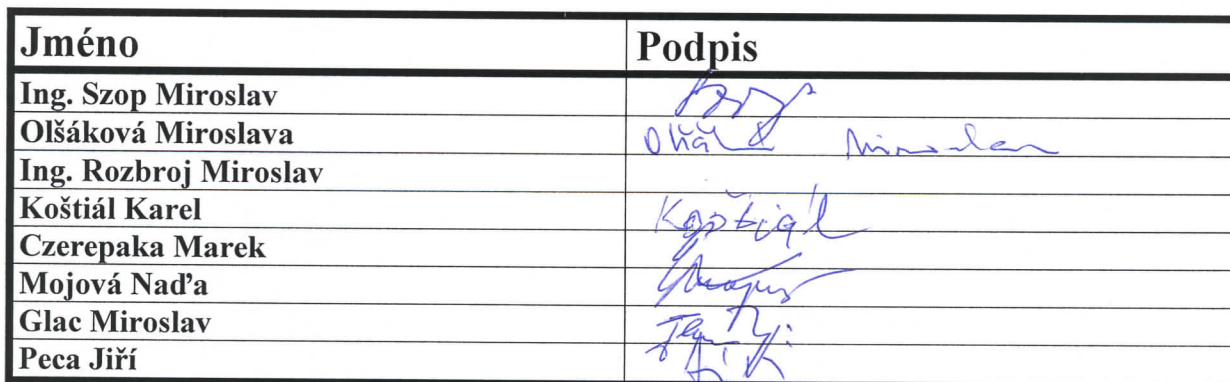 Jméno Podpis
Ing. Szop Miroslav
Olšáková Miroslava
Ing. Rozbroj Miroslav
Koštiál Karel Koštiál
Czerepaka Marek
Mojová Naďa
Glac Miroslav
Peca Jiří